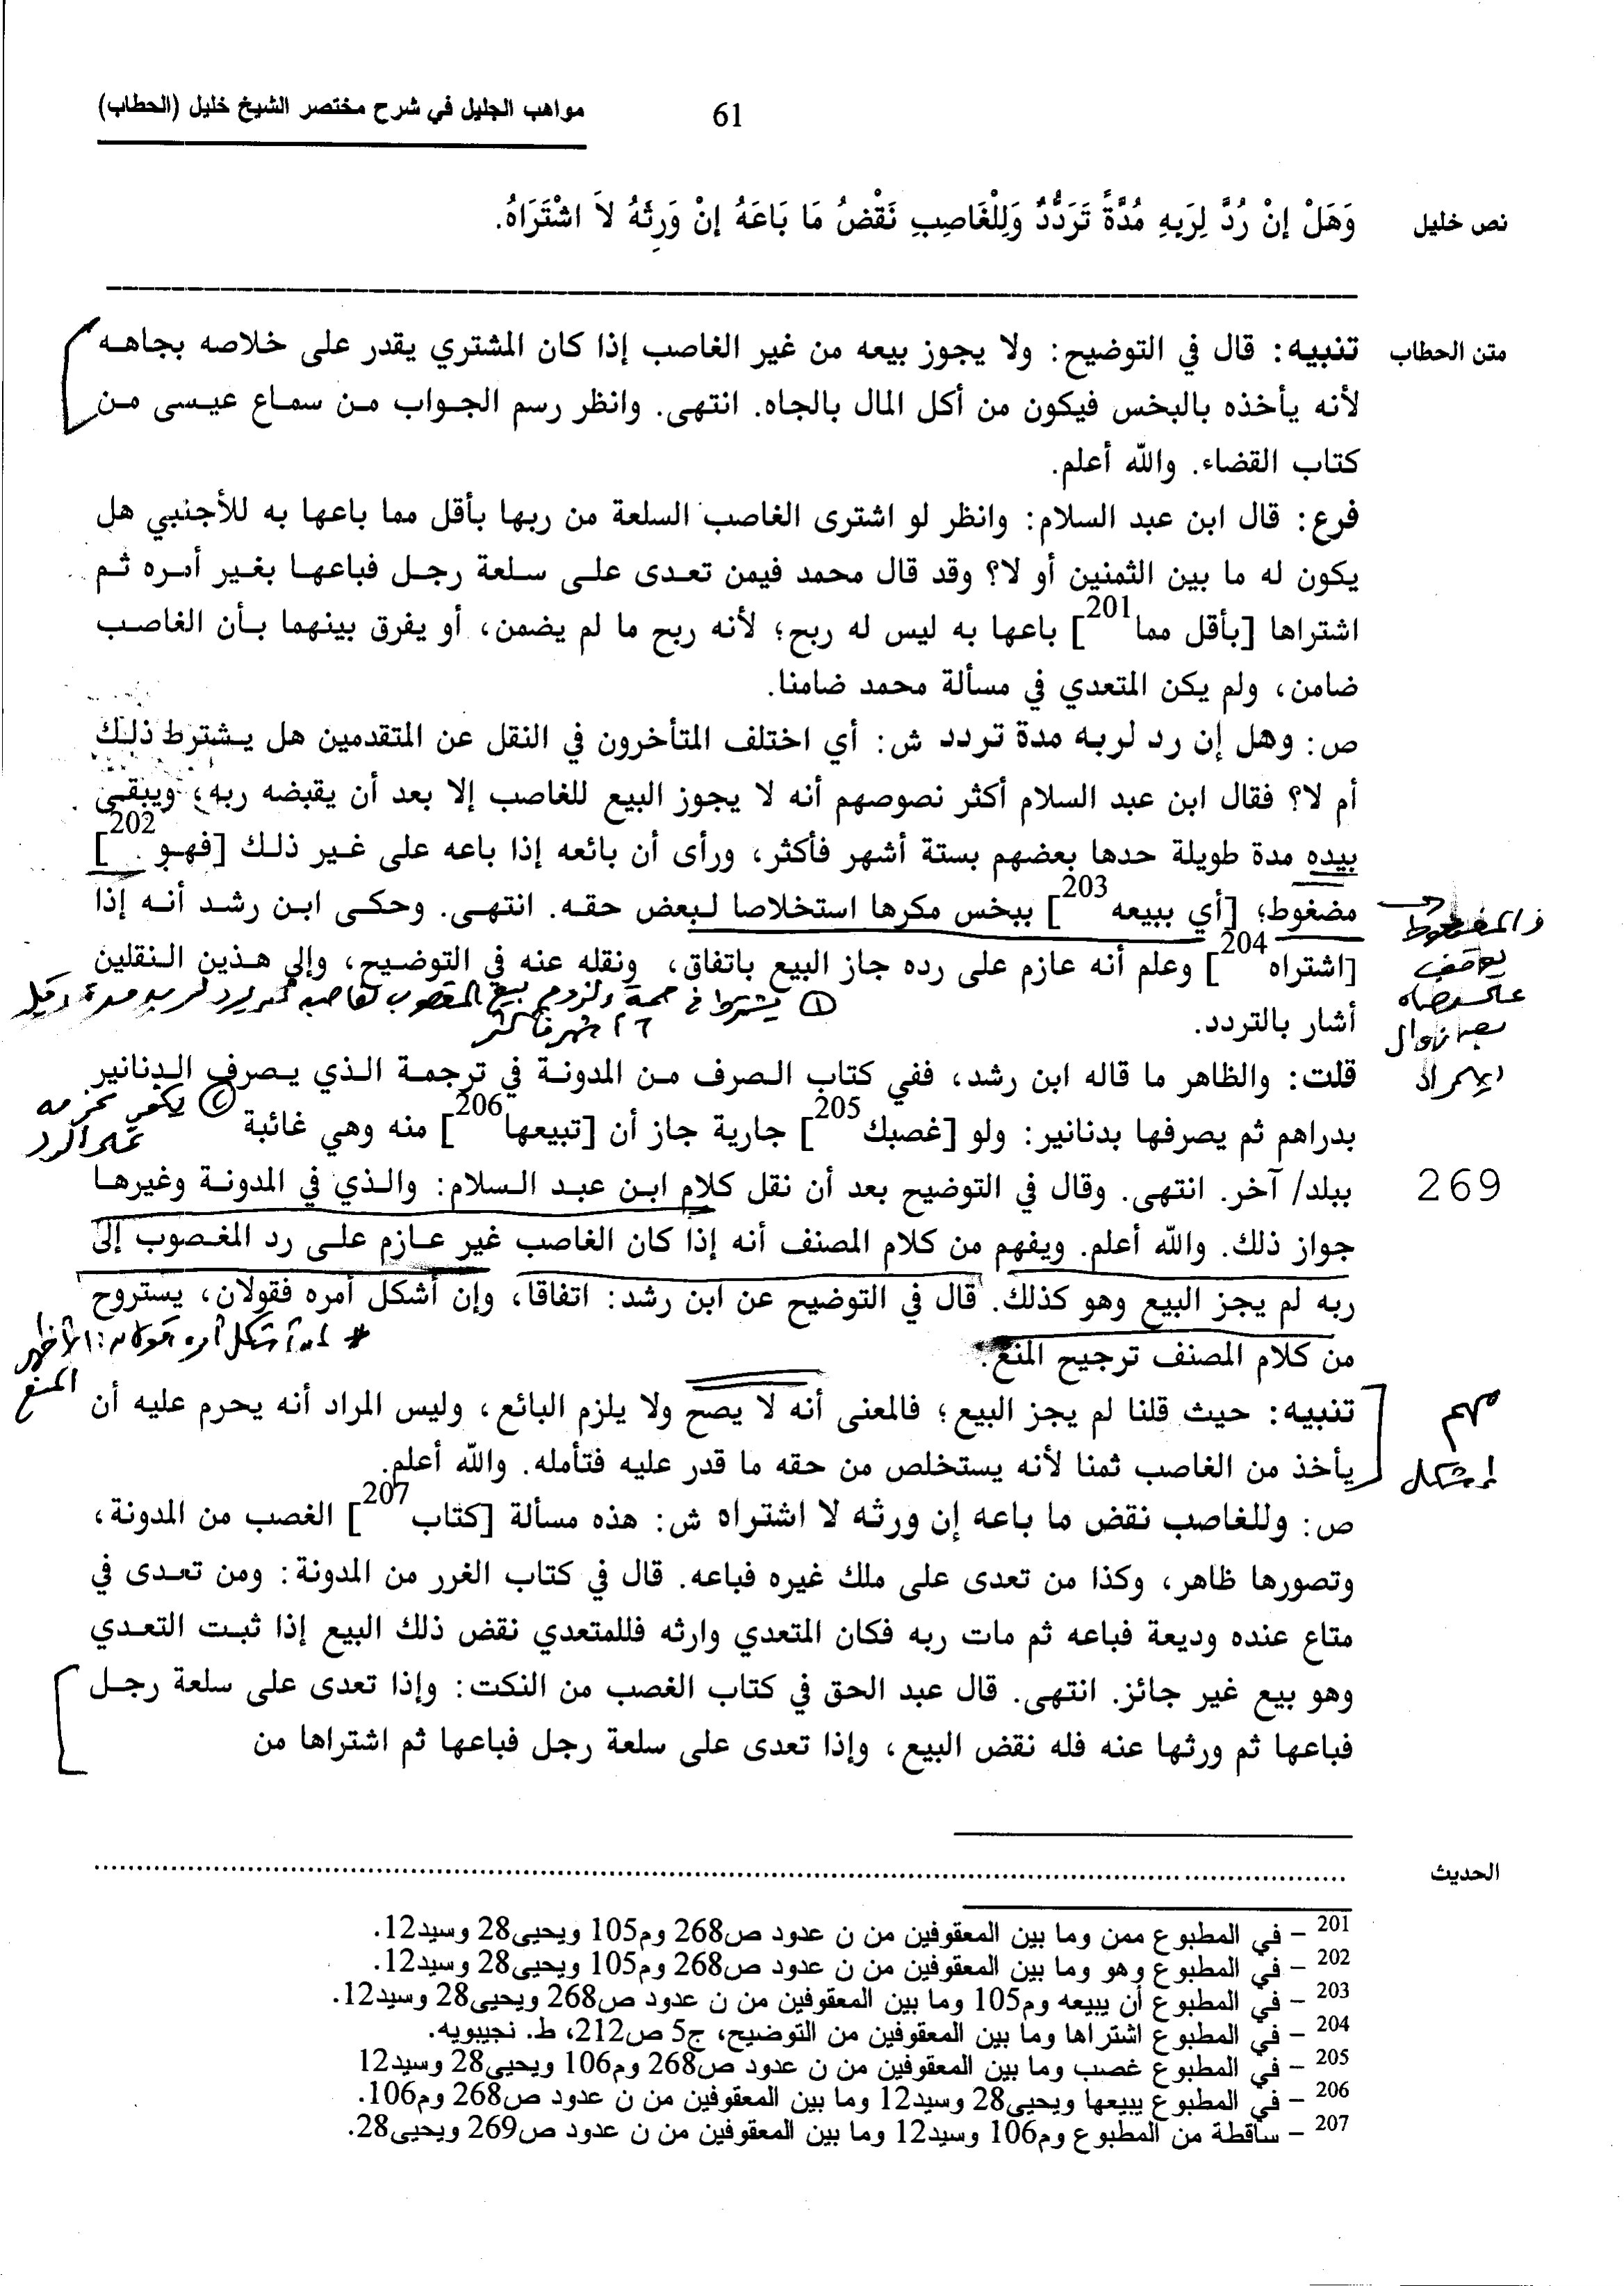 مواهب الجليل في شرح مختصر الشيخ خليل (الحطاب)
61
نص خليل
وَهَلْ إنْ رُدَّ لِرَبِهِ مُدَّةً تَرَدُّدٌ وَلِلْغَاصِبِ نَقْضُ مَا بَاعَهُ إنْ وَرِثَهُ لاَ اشْتَرَاهُ.
متن الحطاب
تنبيه: قال في التوضيح: ولا يجوز بيعه من غير الغاصب إذا كان المشتري يقدر على خلاصه بجاهه
لأنه يأخذه بالبخس فيكون من أكل المال بالجاه. انتهى. وانظر رسم الجواب من سماع عيسى من
كتاب القضاء. والله أعلم.
فرع: قال ابن عبد السلام: وانظر لو اشترى الغاصب السلعة من ربها بأقل مما باعها به للأجنبي هل
يكون له ما بين الثمنين أو لا؟ وقد قال محمد فيمن تعدى على سلعة رجل فباعها بغير أمره ثم
اشتراها [بأقل مما201] باعها به ليس له ربح؛ لأنه ربح ما لم يضمن، أو يفرق بينهما بأن الغاصب
ضامن، ولم يكن المتعدي في مسألة محمد ضامنا.
ص: وهل إن رد لربه مدة تردد ش: أي اختلف المتأخرون في النقل عن المتقدمين هل يشترط ذلك
أم لا؟ فقال ابن عبد السلام أكثر نصوصهم أنه لا يجوز البيع للغاصب إلا بعد أن يقبضه ربه، ويبقى
بيده مدة طويلة حدها بعضهم بستة أشهر فأكثر، ورأى أن بائعه إذا باعه على غير ذلك [فهو202]
مضغوط؛ [أي ببيعه203] ببخس مكرها استخلاصا لبعض حقه. انتهى. وحكى ابن رشد أنه إذا
[اشتراه204] وعلم أنه عازم على رده جاز البيع باتفاق، ونقله عنه في التوضيح، وإلى هذين النقلين
أشار بالتردد.
قلت: والظاهر ما قاله ابن رشد، ففي كتاب الصرف من المدونة في ترجمة الذي يصرف الدنانير
بدراهم ثم يصرفها بدنانير: ولو [غصبك205] جارية جاز أن [تبيعها206] منه وهي غائبة
على الرد
269
ببلد/ آخر. انتهى. وقال في التوضيح بعد أن نقل كلام ابن عبد السلام: والذي في المدونة وغيرها
جواز ذلك. والله أعلم. ويفهم من كلام المصنف أنه إذا كان الغاصب غير عازم على رد المغصوب إلى
ربه لم يجز البيع وهو كذلك. قال في التوضيح عن ابن رشد: اتفاقا، وإن أشكل أمره فقولان، يستروح
من كلام المصنف ترجيح المنع.
المنع
مهم
تنبيه: حيث قلنا لم يجز البيع؛ فالمعنى أنه لا يصح ولا يلزم البائع، وليس المراد أنه يحرم عليه أن
يأخذ من الغاصب ثمنا لأنه يستخلص من حقه ما قدر عليه فتأمله. والله أعلم.
ص: وللغاصب نقض ما باعه إن ورثه لا اشتراه ش: هذه مسألة [كتاب207] الغصب من المدونة،
وتصورها ظاهر، وكذا من تعدى على ملك غيره فباعه. قال في كتاب الغرر من المدونة: ومن تعدى في
متاع عنده وديعة فباعه ثم مات ربه فكان المتعدي وارثه فللمتعدي نقض ذلك البيع إذا ثبت التعدي
وهو بيع غير جائز. انتهى. قال عبد الحق في كتاب الغصب من النكت: وإذا تعدى على سلعة رجل
فباعها ثم ورثها عنه فله نقض البيع، وإذا تعدى على سلعة رجل فباعها ثم اشتراها من
الحديث
201 – في المطبوع ممن وما بين المعقوفين من ن عدود ص268 وم105 ويحيى28 وسيد12.
202 – في المطبوع وهو وما بين المعقوفين من ن عدود ص268 وم105 ويحيى28 وسيد12.
203 – في المطبوع أن يبيعه وم105 وما بين المعقوفين من ن عدود ص268 ويحيى28 وسيد12.
204 – في المطبوع اشتراها وما بين المعقوفين من التوضيح، ج5 ص212، ط. نجيبويه.
205 – في المطبوع غصب وما بين المعقوفين من ن عدود ص268 وم106 ويحيى28 وسيد12
206 – في المطبوع يبيعها ويحيى28 وسيد12 وما بين المعقوفين من ن عدود ص268 وم106.
207 – ساقطة من المطبوع وم106 وسيد12 وما بين المعقوفين من ن عدود ص269 ويحيى28.